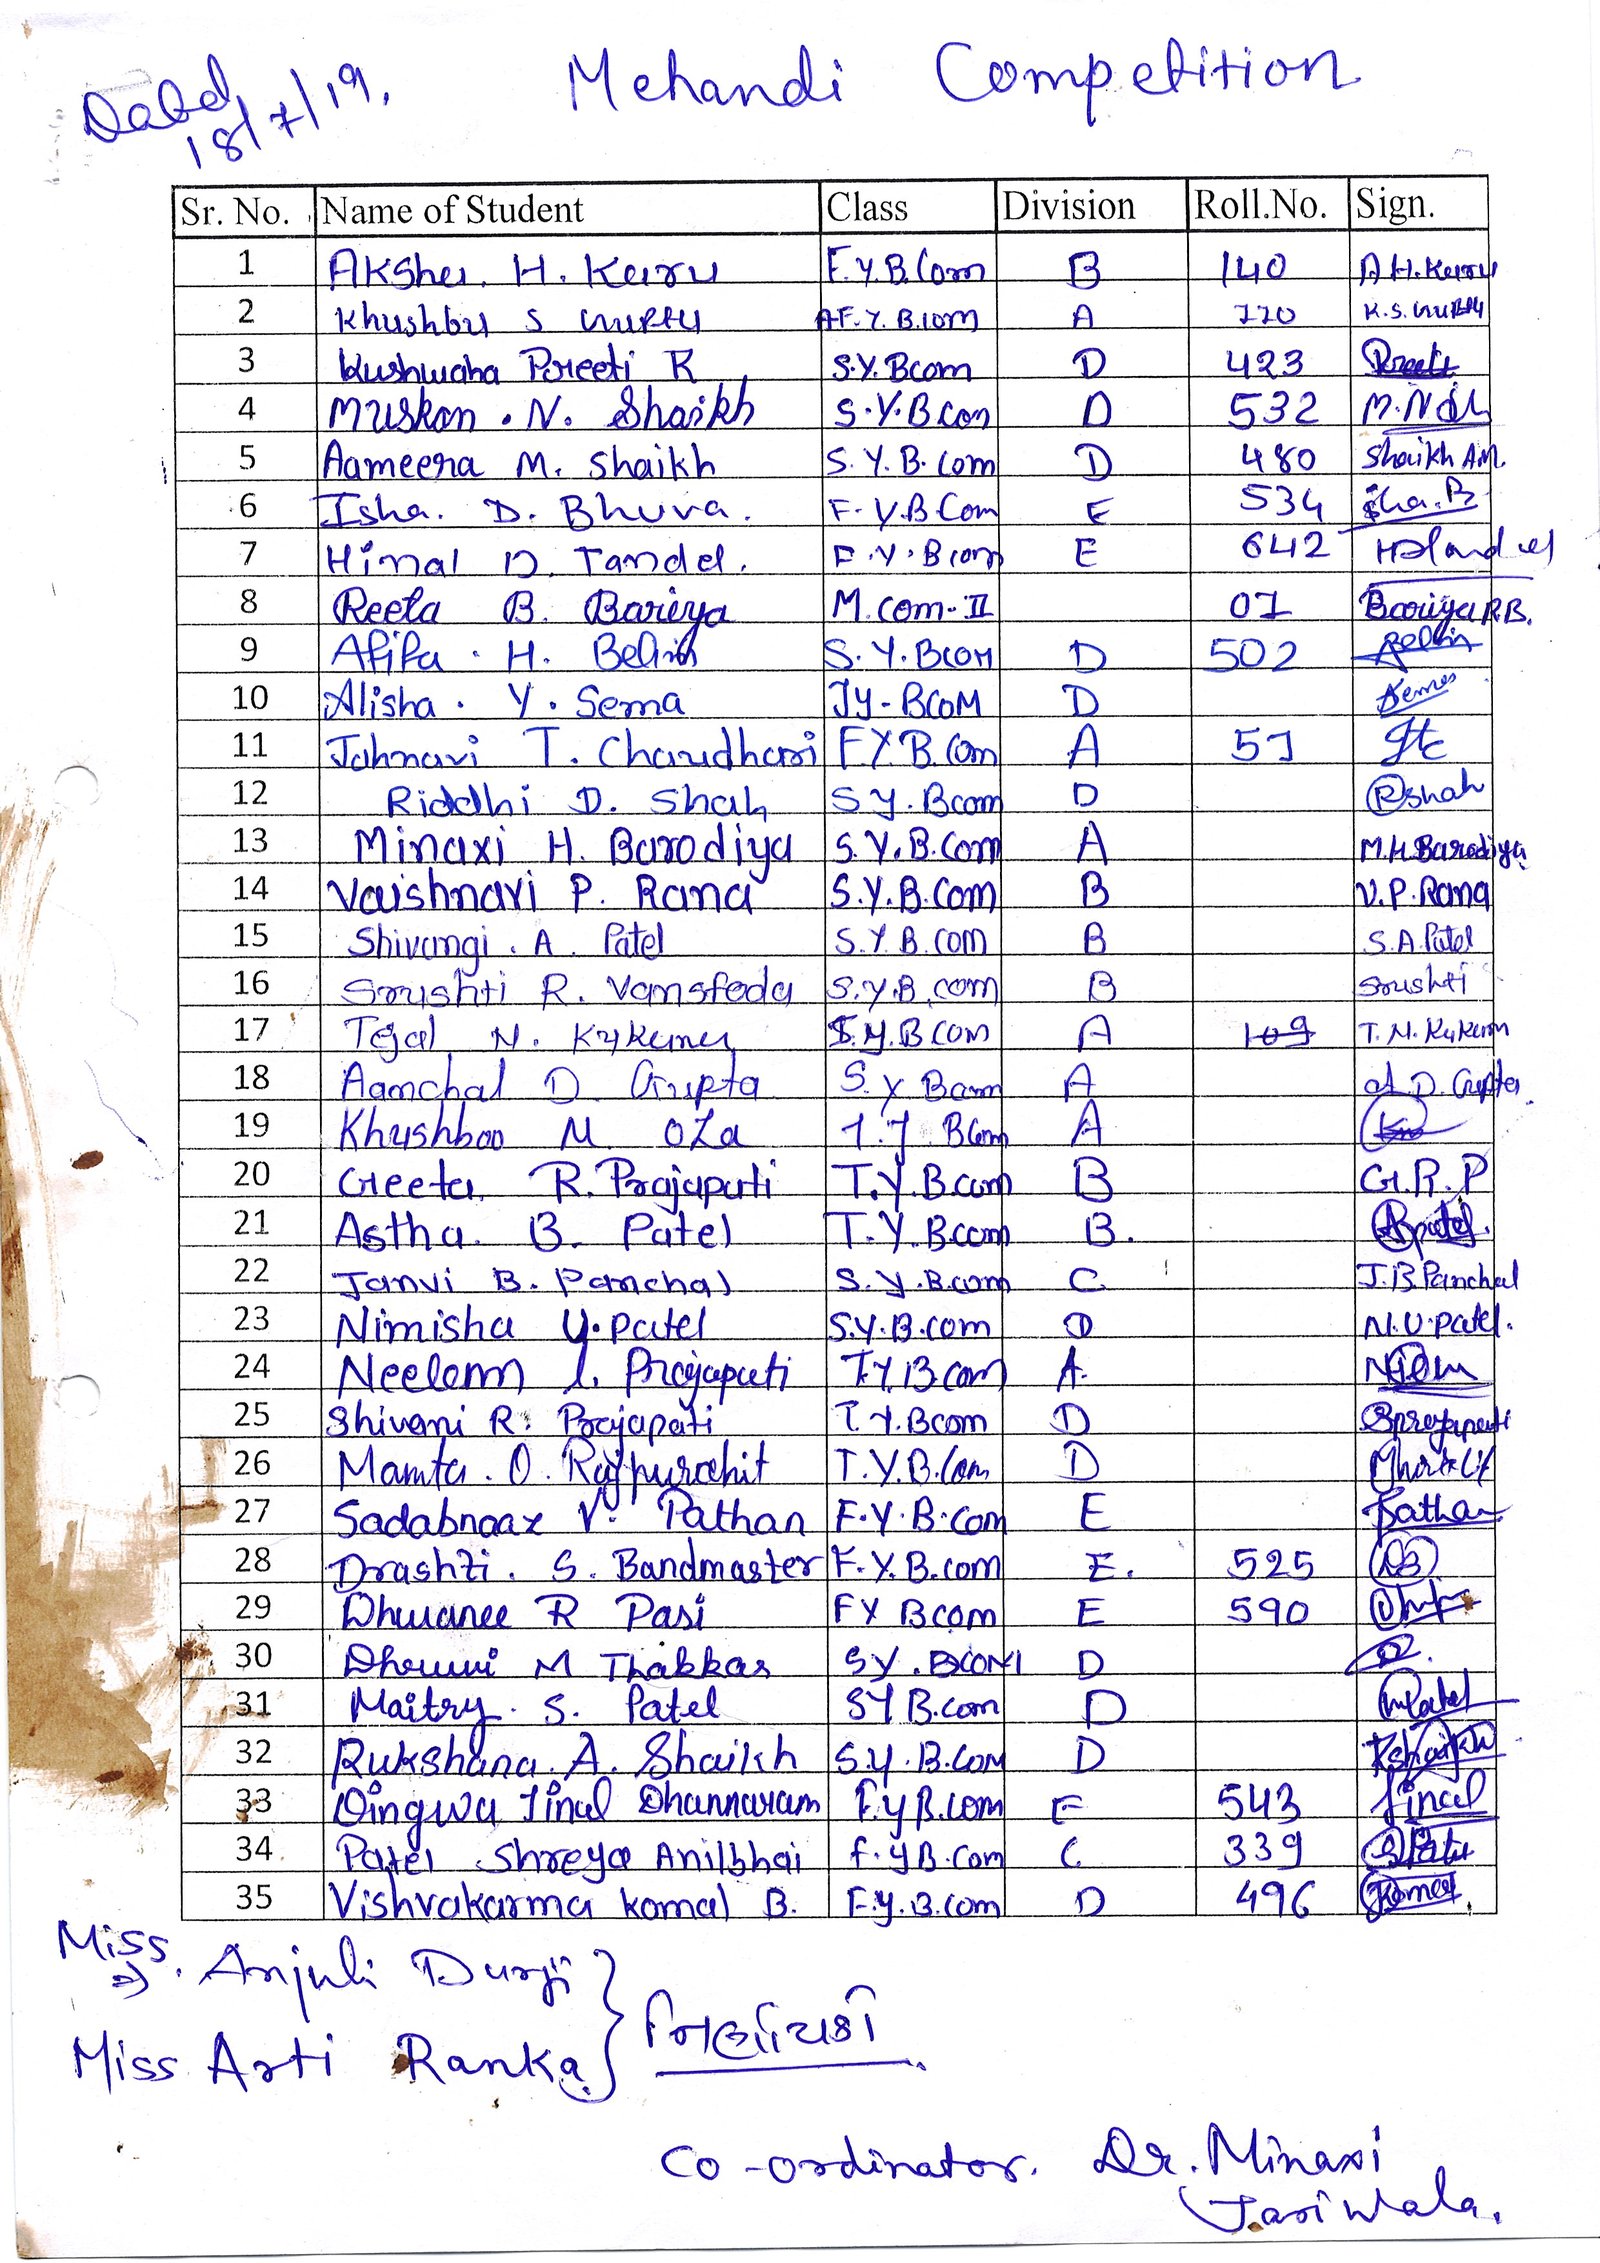 Dated 18/7/19.
Mehandi Competition
Sr. No. Name of Student Class Division Roll.No. Sign.
1 H. F.Y.B.Com B 140
2 Khushbu S F.Y.B.com A 110
3 Kushwaha Preeti R S.Y.Bcom D 423 Preeti
4 Muskan . N. Shaikh S.Y.B.con D 532
5 Aameera M. Shaikh S.Y.B.com D 480 Shaikh A.M.
6 Isha. D. Bhuva. F.Y.B.Com E 534 Isha.B.
7 Hinal D. Tandel. F.Y.Bcom E 642
8 Reeta B. Bariya M.com-II 01 Bariya R.B.
9 Afifa . H. Belim S.Y.Bcom D 502 Belim
10 Alisha . Y. Sema TY-BCOM D
11 Jahnavi T. Chaudhari F.Y.B.Com A 51
12 Riddhi D. Shah S.Y.Bcom D Rshah
13 Minaxi H. Barodiya S.Y.B.Com A M.H.Barodiya
14 Vaishnavi P. Rana S.Y.B.Com B V.P.Rana
15 Shivangi . A. Patel S.Y.B.com B S.A.Patel
16 Srushti R. Vansfoda S.Y.B.com B Srushti
17 Tejal N. S.Y.B.com A 109
18 Aanchal D Gupta S.Y Bcom A D. Gupta
19 Khushboo M. OZa T.Y Bcom A
20 Geeta R. Prajapati T.Y.B.com B G.R.P
21 Astha. B. Patel T.Y.B.com B. Apatel.
22 Janvi B. Panchal S.Y.B.com C J.B.Panchal
23 Nimisha U. Patel S.Y.B.com D N.U.Patel.
24 Neelam L. Prajapati T.Y.B.com A.
25 Shivani R. Prajapati T.Y.Bcom D Sprajapati
26 Mamta . O. Rajpurohit T.Y.B.Com D
27 Sadabnaaz V. Pathan F.Y.B.Com E Pathan
28 Drashti. S. Bandmaster F.Y.B.com E. 525
29 Dhwanee R Pasi FY Bcom E 590
30 Dhruvi M Thakkar SY.BCOM D
31 Maitry. S. Patel SY B.com D mpatel
32 Rukshana. A. Shaikh S.Y.B.Com D Rshaikh
33 Dingwa Jinal Dhannaram F.Y B.com E 543 Jinal
34 Patel Shreya Anilbhai F.Y B.Com C 339 SPatel
35 Vishvakarma Komal B. F.Y.B.com D 496 Komal
Miss. Anjuli Durji
Miss Arti Ranka
નિર્ણાયકો
Co-ordinator. Dr. Minaxi
Jariwala.